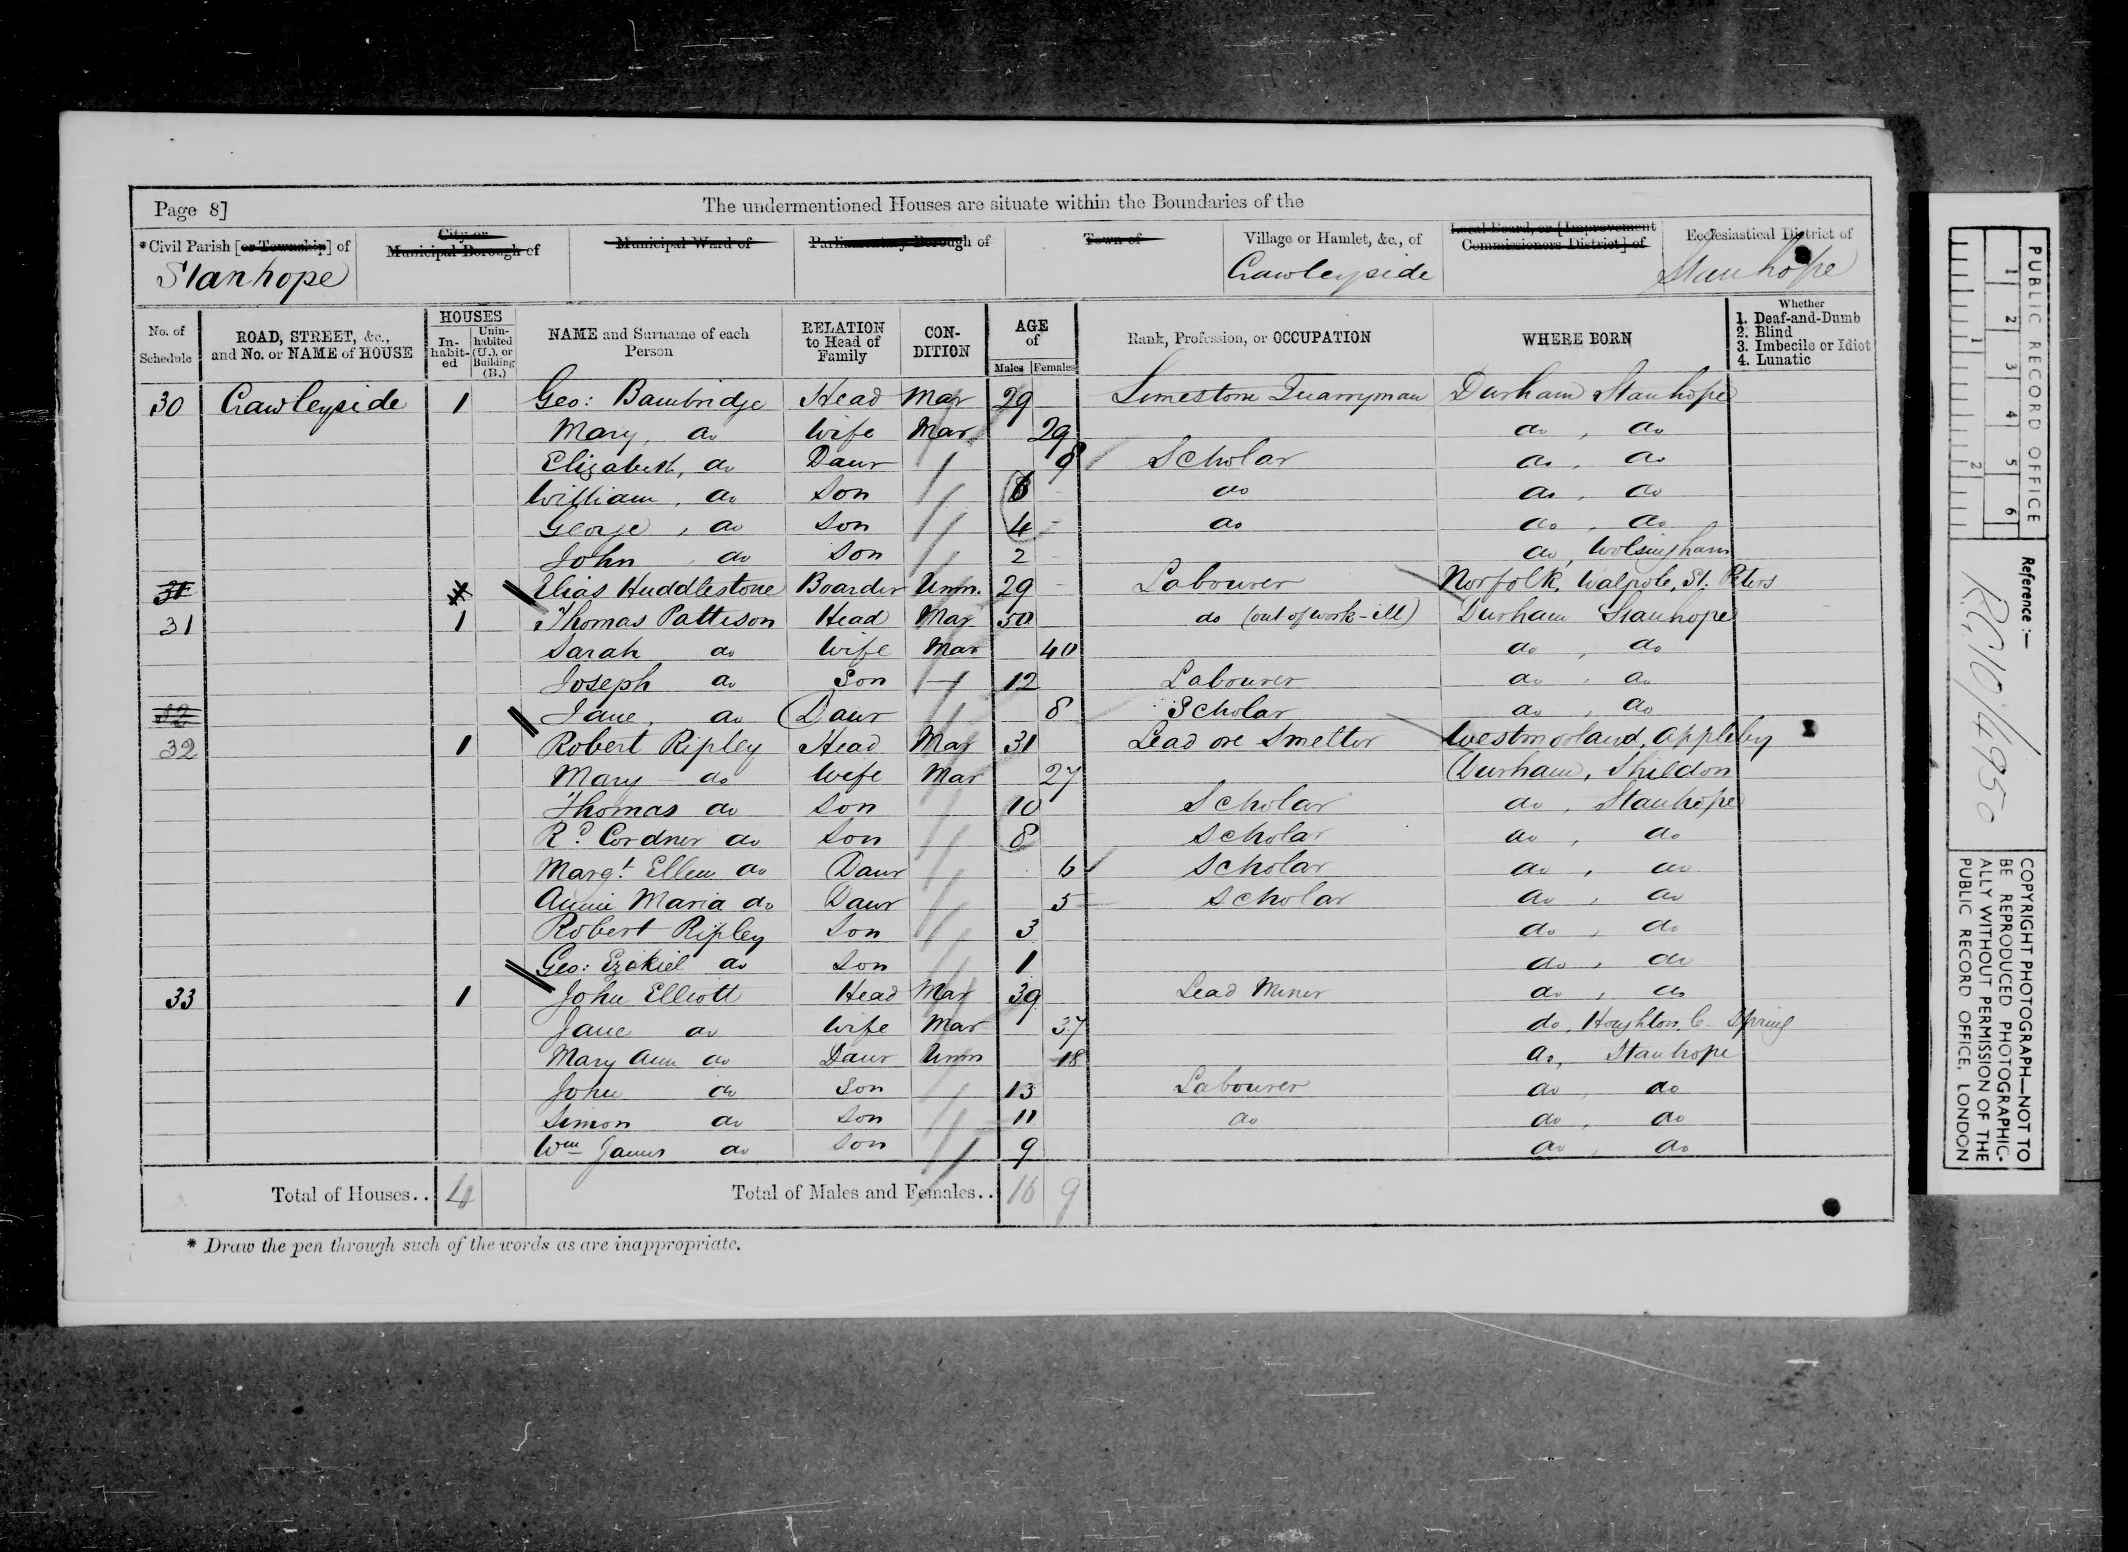 Page 8] The undermentioned Houses are situate within the Boundaries of the
*Civil Parish [or Township] of City or Municipal Borough of Municipal Ward of Parliamentary Borough of Town of Village or Hamlet, &c., of Local Board, or [Improvement Commissioners District] of Ecclesiastical District of
Stanhope Crawleyside Stanhope
No. of Schedule ROAD, STREET, &c., and No. or NAME of HOUSE HOUSES In-habit-ed Unin-habited (U.), or Building (B.) NAME and Surname of each Person RELATION to Head of Family CON-DITION AGE of Males Females Rank, Profession, or OCCUPATION WHERE BORN Whether 1. Deaf-and-Dumb 2. Blind 3. Imbecile or Idiot 4. Lunatic
30 Crawleyside 1 Geo: Bambridge Head Mar 29 Limestone Quarryman Durham Stanhope
Mary, do Wife Mar 29 do, do
Elizabeth, do Daur 8 Scholar do, do
William, do Son 6 do do, do
George, do Son 4 do do, do
John do Son 2 do, Wolsingham
31 Elias Huddlestone Boarder Unm. 29 Labourer Norfolk, Walpole, St. Peters
31 1 Thomas Pattison Head Mar 50 do (out of work-ill) Durham Stanhope
Sarah do Wife Mar 40 do, do
Joseph do Son 12 Labourer do, do
32 Jane, do Daur 8 Scholar do, do
32 1 Robert Ripley Head Mar 31 Lead ore Smelter Westmorland, Appleby
Mary do Wife Mar 27 Durham, Shildon
Thomas do Son 10 Scholar do, Stanhope
Rd. Cordner do Son 8 Scholar do, do
Margt. Ellen do Daur 6 Scholar do, do
Annie Maria do Daur 5 Scholar do, do
Robert Ripley Son 3 do, do
Geo: Ezekiel do Son 1 do, do
33 1 John Elliott Head Mar 39 Lead Miner do, do
Jane do Wife Mar 37 do, Houghton, C. Spring
Mary Ann do Daur Unm 18 do, Stanhope
John do Son 13 Labourer do, do
Simon do Son 11 do do, do
Wm James do Son 9 do, do
Total of Houses.. 4 Total of Males and Females.. 16 9
* Draw the pen through such of the words as are inappropriate.
PUBLIC RECORD OFFICE
1 2 3 4 5 6
1 2
Reference:—
RG 10/4950
COPYRIGHT PHOTOGRAPH—NOT TO
BE REPRODUCED PHOTOGRAPHIC-
ALLY WITHOUT PERMISSION OF THE
PUBLIC RECORD OFFICE, LONDON